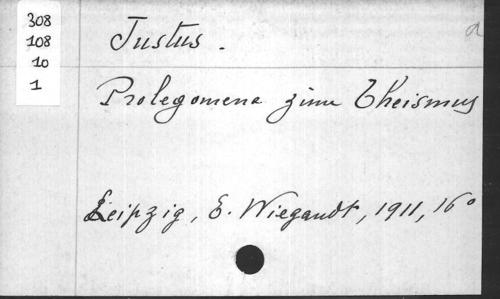 308
108
10
1
Justus.
a
Prolegomena zum Theismus
Leipzig, E. Wiegandt, 1911, 16°